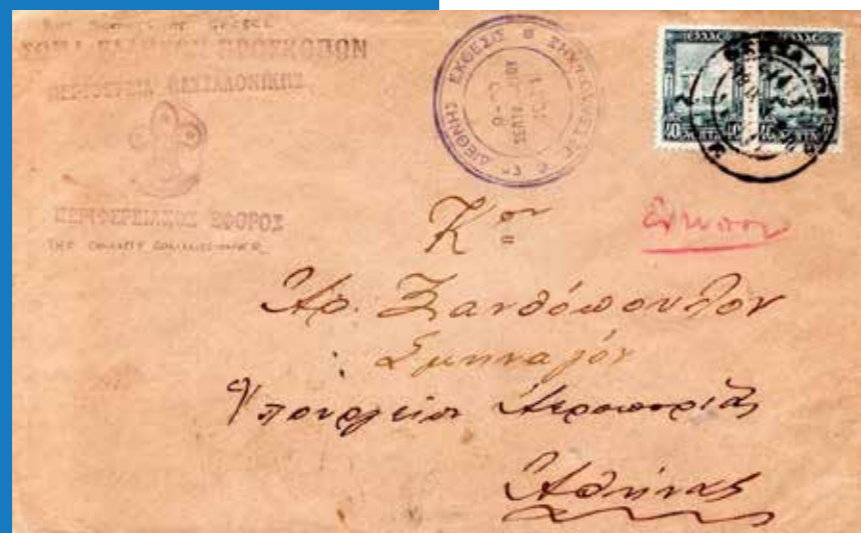 BOY SCOUTS OF GREECE
ΣΩΜΑ ΕΛΛΗΝΩΝ ΠΡΟΣΚΟΠΩΝ
ΠΕΡΙΦΕΡΕΙΑ ΘΕΣΣΑΛΟΝΙΚΗΣ
ΠΕΡΙΦΕΡΕΙΑΚΟΣ ΕΦΟΡΟΣ
THE COUNTY COMMISSIONER
ΔΙΕΘΝΗΣ ΕΚΘΕΣΙΣ
ΕΛΛΑΣ
40 ΛΕΠΤΑ 40
Κον
Έντυπον
Αρ. Ξανθόπουλον
Σμηναγόν
Υπουργείον Αεροπορίας
Αθήνας